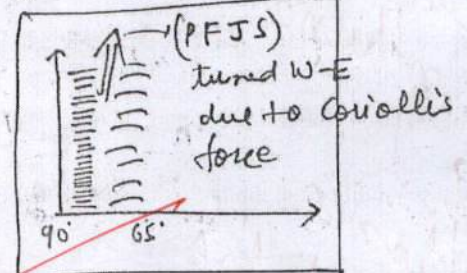 (PFJS)
turned W-E
due to Coriollis
force
90° 65°